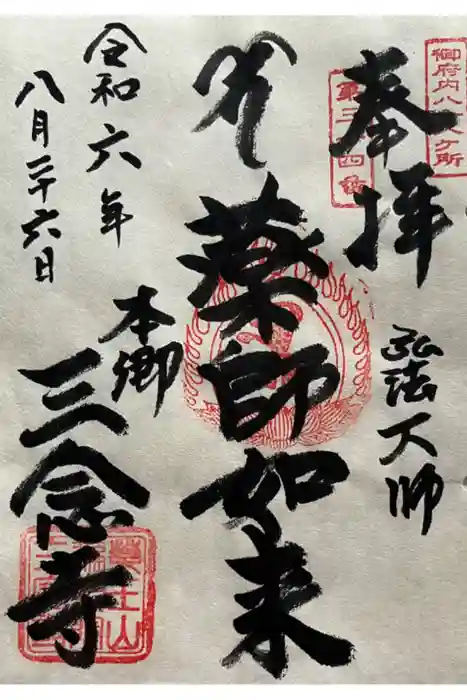 御府内八十八ヶ所
第三十四番
奉拝
弘法大師
薬師如来
本郷
三念寺
令和六年
八月二十六日